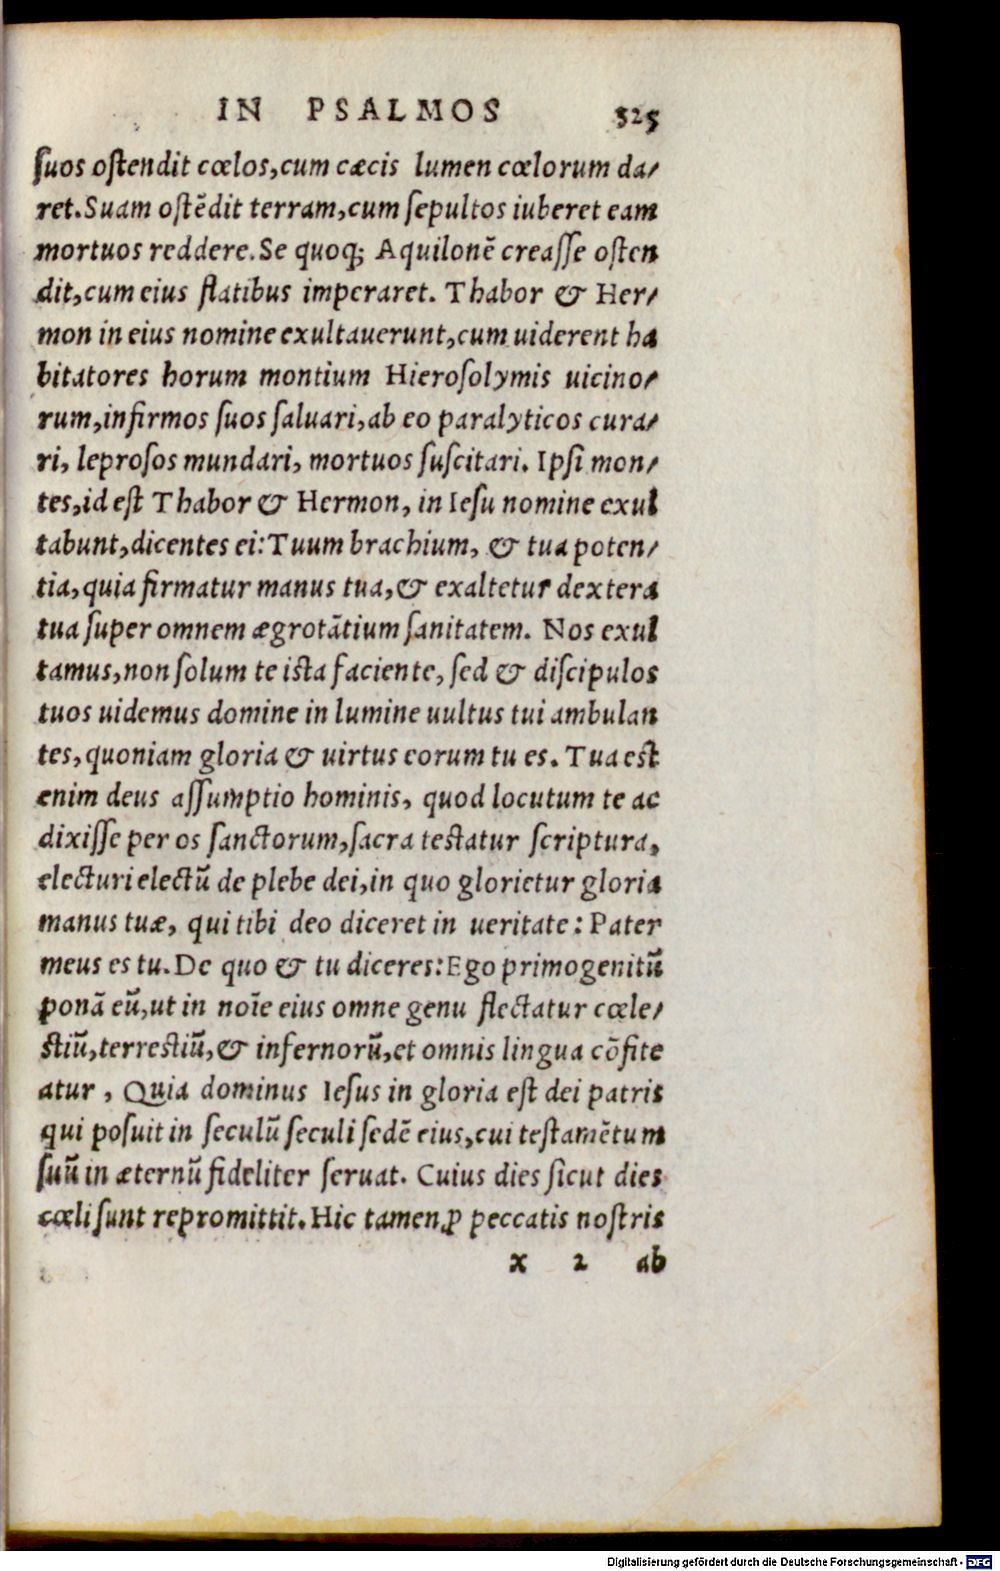 IN PSALMOS 325
suos ostendit cœlos, cum cæcis lumen cœlorum da/
ret. Suam ostēdit terram, cum sepultos iuberet eam
mortuos reddere. Se quoq; Aquilonē creasse osten
dit, cum eius flatibus imperaret. Thabor & Her/
mon in eius nomine exultauerunt, cum uiderent ha
bitatores horum montium Hierosolymis uicino/
rum, infirmos suos saluari, ab eo paralyticos cura/
ri, leprosos mundari, mortuos suscitari. Ipsi mon/
tes, id est Thabor & Hermon, in Iesu nomine exul
tabunt, dicentes ei: Tuum brachium, & tua poten/
tia, quia firmatur manus tua, & exaltetur dextera
tua super omnem ægrotātium sanitatem. Nos exul
tamus, non solum te ista faciente, sed & discipulos
tuos uidemus domine in lumine uultus tui ambulan
tes, quoniam gloria & uirtus eorum tu es. Tua est
enim deus assumptio hominis, quod locutum te ac
dixisse per os sanctorum, sacra testatur scriptura,
electuri electū de plebe dei, in quo glorietur gloria
manus tuæ, qui tibi deo diceret in ueritate: Pater
meus es tu. De quo & tu diceres: Ego primogenitū
ponā eū, ut in noīe eius omne genu flectatur cœle/
stiū, terrestiū, & infernorū, et omnis lingua cōfite
atur, Quia dominus Iesus in gloria est dei patris
qui posuit in seculū seculi sedē eius, cui testamētum
suū in æternū fideliter seruat. Cuius dies sicut dies
cœli sunt repromittit. Hic tamen ꝓ peccatis nostris
x 2 ab
Digitalisierung gefördert durch die Deutsche Forschungsgemeinschaft - DFG